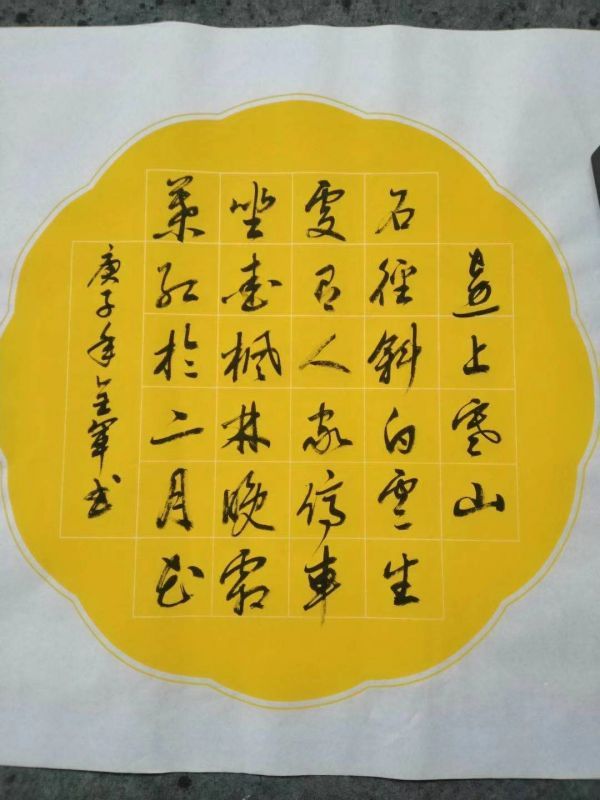 遠上寒山
石徑斜白雲生
處有人家停車
坐愛楓林晚霜
葉紅於二月花
庚子年軍书